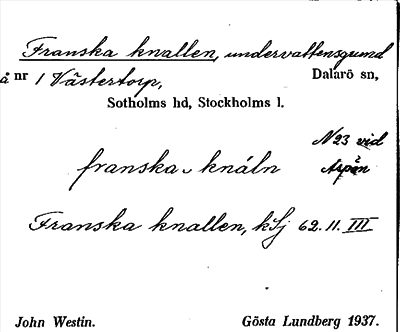 Franska knallen, undervattensgrund
å nr 1 Västertorp, Dalarö sn,
Sotholms hd, Stockholms l.
N 23 vid
franska knáln Aspön
Franska knallen, kSj 62. 11. III
John Westin. Gösta Lundberg 1937.